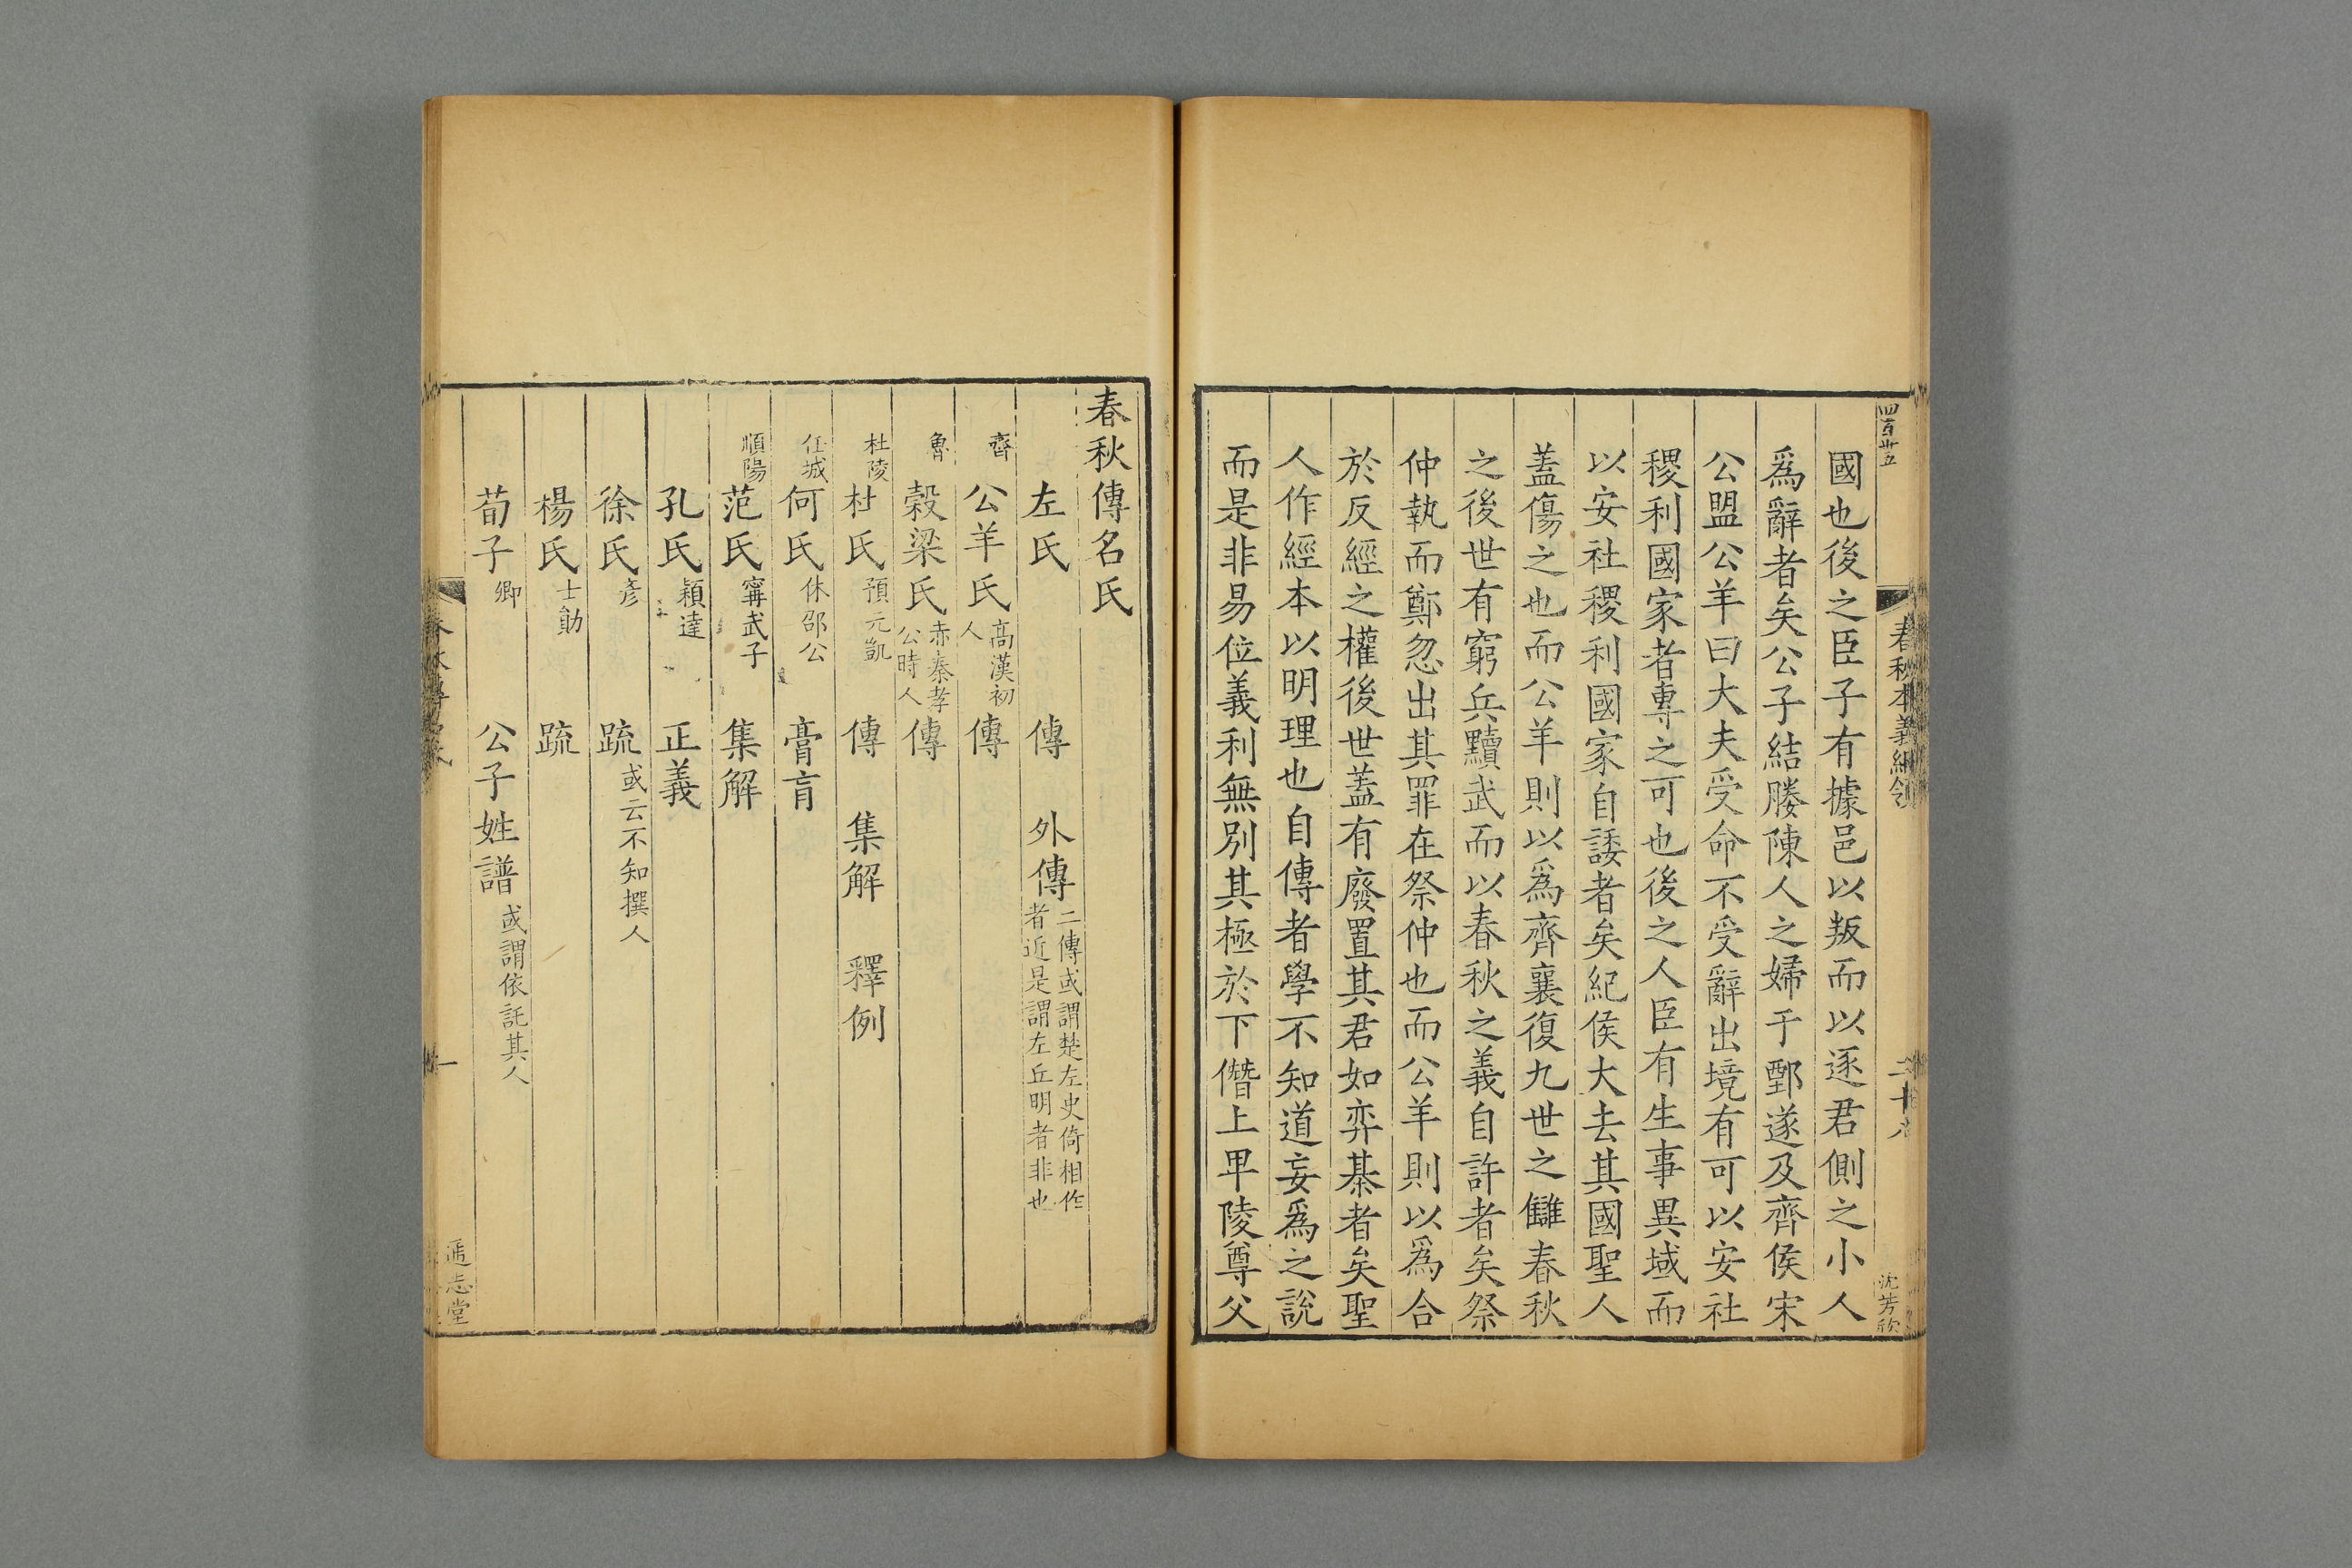 四百廿五
春秋本義綱領
二十八
沈芳欣
國也後之臣子有據邑以叛而以逐君側之小人
爲辭者矣公子結媵陳人之婦于鄄遂及齊侯宋
公盟公羊曰大夫受命不受辭出境有可以安社
稷利國家者專之可也後之人臣有生事異域而
以安社稷利國家自諉者矣紀侯大去其國聖人
蓋傷之也而公羊則以爲齊襄復九世之讎春秋
之後世有窮兵黷武而以春秋之義自許者矣祭
仲執而鄭忽出其罪在祭仲也而公羊則以爲合
於反經之權後世蓋有廢置其君如弈棊者矣聖
人作經本以明理也自傳者學不知道妄爲之說
而是非易位義利無別其極於下僭上卑陵尊父
春秋傳名氏
左氏 傳 外傳二傳或謂楚左史倚相作者近是謂左丘明者非也
齊 公羊氏高漢初人 傳
魯 穀梁氏赤秦孝公時人 傳
杜陵 杜氏預元凱 傳 集解 釋例
任城 何氏休邵公 膏肓
順陽 范氏甯武子 集解
孔氏穎達 正義
徐氏彥 疏或云不知撰人
楊氏士勛 疏
荀子卿 公子姓譜或謂依託其人
春秋傳名氏
一
通志堂